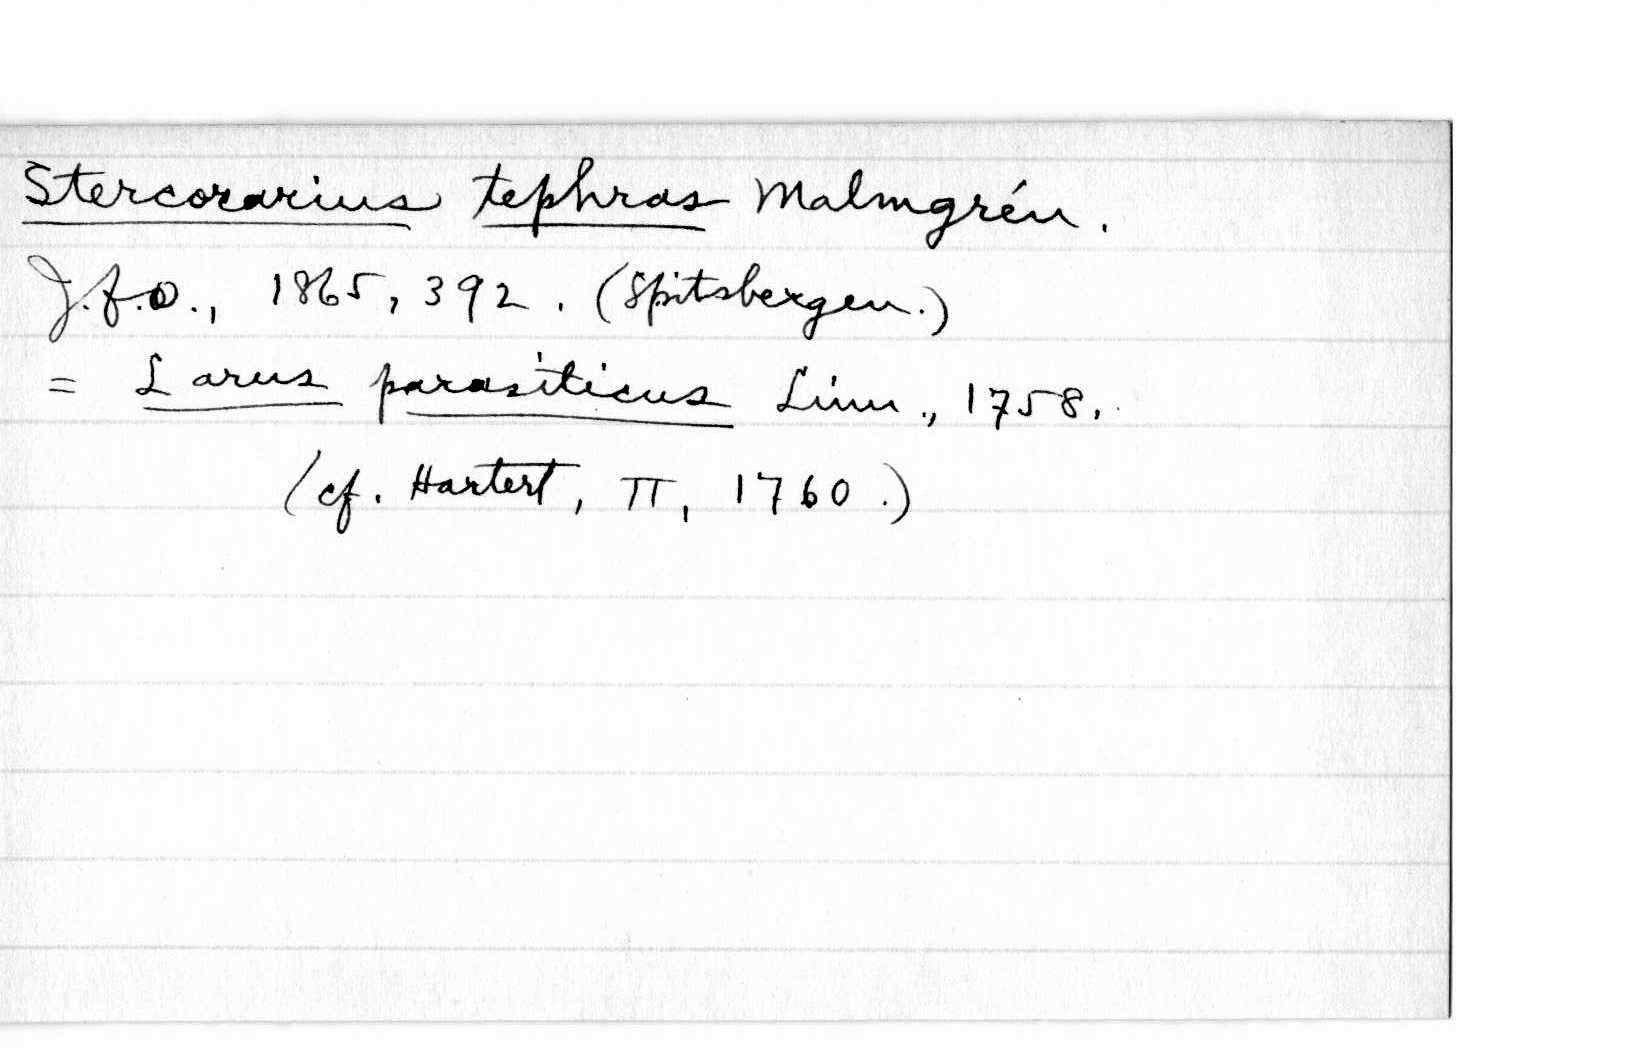 Stercorarius tephras Malmgrén.
J.f.O., 1865, 392. (Spitsbergen.)
= Larus parasiticus Linn., 1758.
(cf. Hartert, II, 1760.)